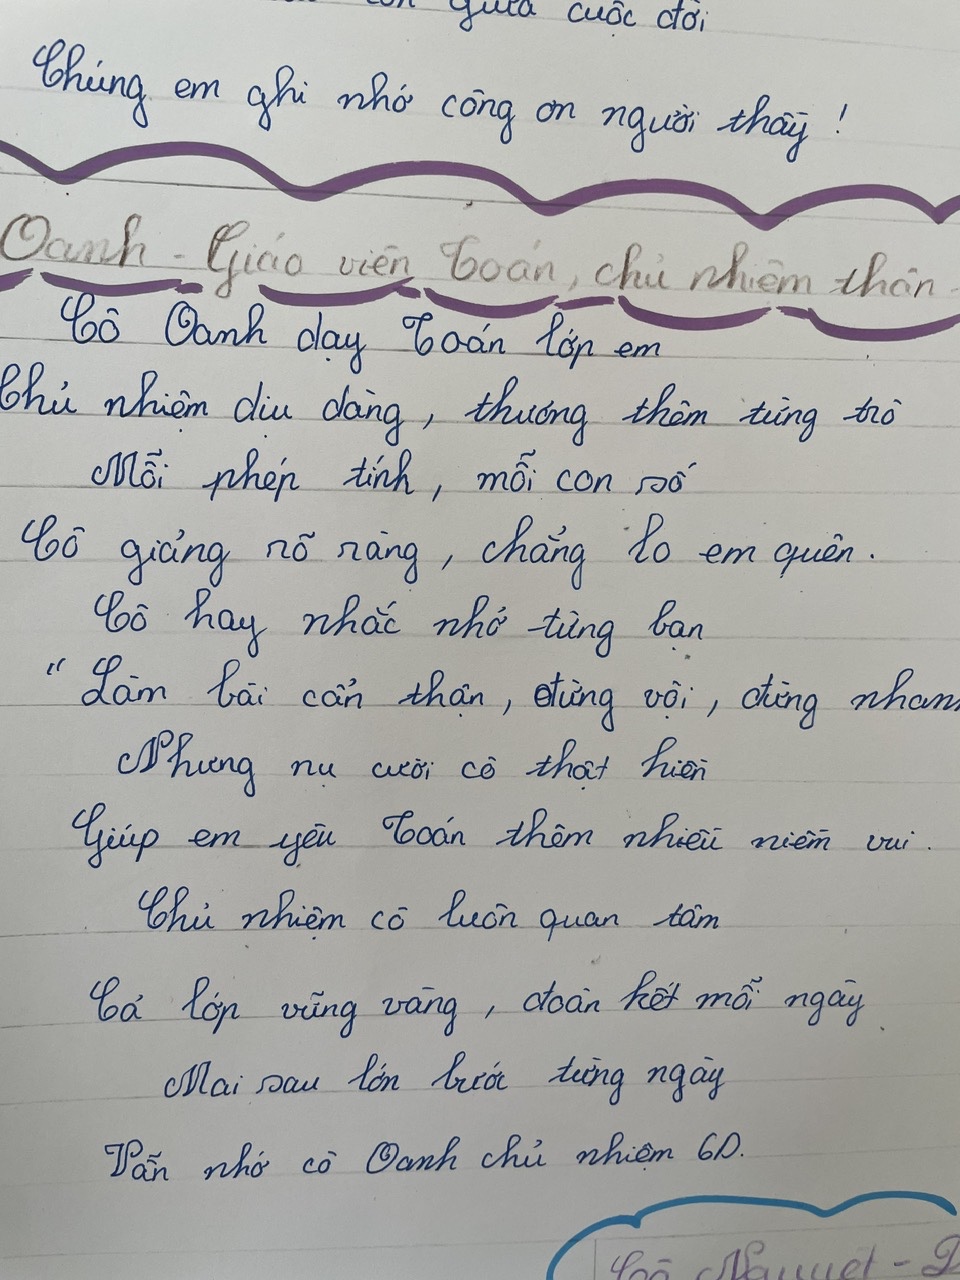 giữa cuộc đời
Chúng em ghi nhớ công ơn người thầy !
Oanh - Giáo viên Toán, chủ nhiệm thân
Cô Oanh dạy Toán lớp em
Chủ nhiệm dịu dàng, thương thêm từng trò
Mỗi phép tính, mỗi con số
Cô giảng rõ ràng, chẳng lo em quên.
Cô hay nhắc nhớ từng bạn
"Làm bài cẩn thận, đừng vội, đừng nhanh
Nhưng nụ cười cô thật hiền
Giúp em yêu Toán thêm nhiều niềm vui.
Chủ nhiệm cô luôn quan tâm
Cả lớp vững vàng, đoàn kết mỗi ngày
Mai sau lớn bước từng ngày
Vẫn nhớ cô Oanh chủ nhiệm 6D.
Cô Nguyệt -